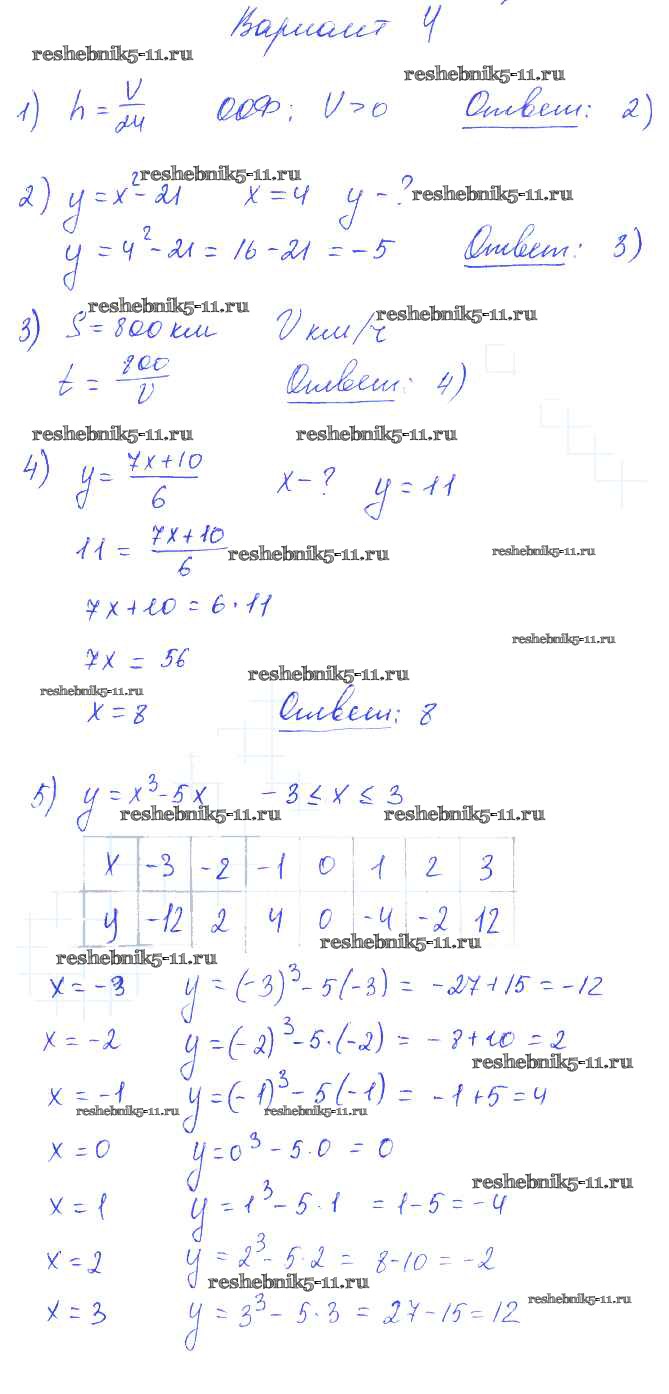 Вариант 4
reshebnik5-11.ru
reshebnik5-11.ru
1) h = V/24 ООФ: V>0 Ответ: 2)
reshebnik5-11.ru
2) y = x² - 21 x = 4 y - ? reshebnik5-11.ru
y = 4² - 21 = 16 - 21 = -5 Ответ: 3)
reshebnik5-11.ru
3) S = 800 км V км/ч reshebnik5-11.ru
t = 800/V Ответ: 4)
reshebnik5-11.ru reshebnik5-11.ru
4) y = (7x+10)/6 x - ? y = 11
11 = (7x+10)/6 reshebnik5-11.ru reshebnik5-11.ru
7x+10 = 6·11
reshebnik5-11.ru
7x = 56
reshebnik5-11.ru
reshebnik5-11.ru
x = 8 Ответ: 8
5) y = x³ - 5x -3 ≤ x ≤ 3
reshebnik5-11.ru reshebnik5-11.ru
x -3 -2 -1 0 1 2 3
y -12 2 4 0 -4 -2 12
reshebnik5-11.ru
reshebnik5-11.ru
x = -3 y = (-3)³ - 5(-3) = -27+15 = -12
x = -2 y = (-2)³ - 5·(-2) = -8+10 = 2
reshebnik5-11.ru
x = -1 y = (-1)³ - 5(-1) = -1+5 = 4
reshebnik5-11.ru reshebnik5-11.ru
x = 0 y = 0³ - 5·0 = 0
reshebnik5-11.ru
x = 1 y = 1³ - 5·1 = 1-5 = -4
x = 2 y = 2³ - 5·2 = 8-10 = -2
reshebnik5-11.ru
reshebnik5-11.ru
x = 3 y = 3³ - 5·3 = 27-15 = 12